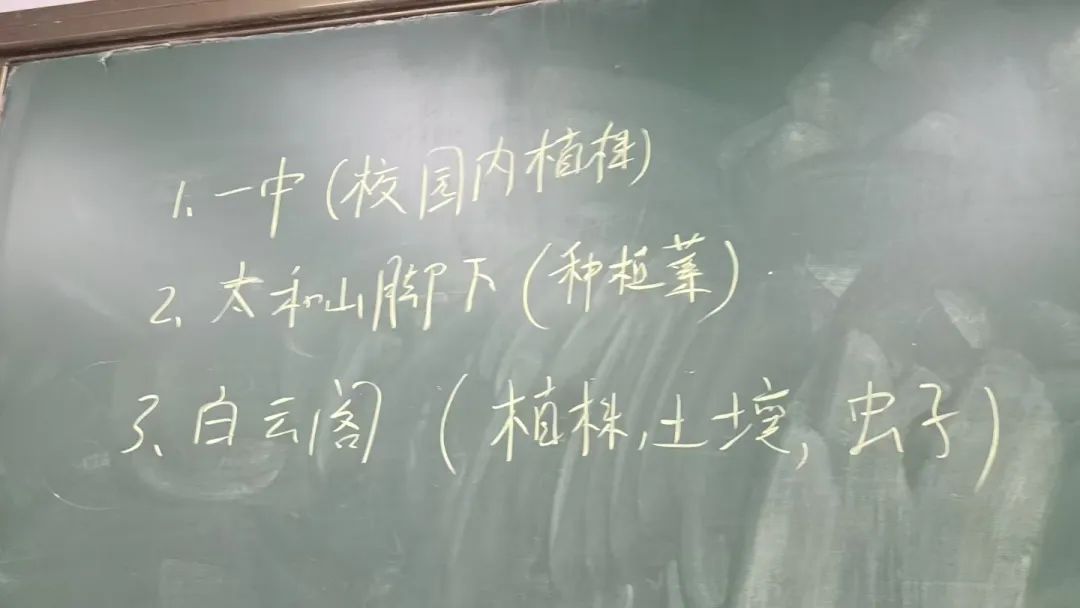 1、一中(校园内植株)
2、太和山脚下(种植菜)
3、白云阁(植株,土壤,虫子)